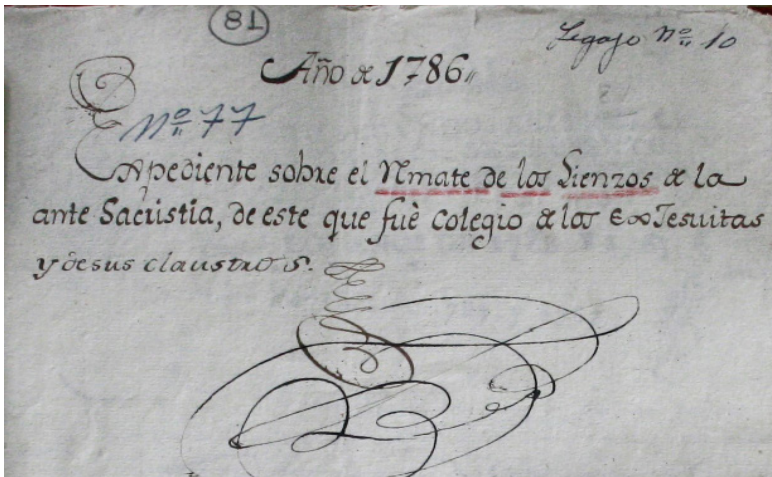 81
Legajo Nº 10
Año de 1786
Nº 77
Expediente sobre el Rmate de los Lienzos de la
ante Sacristia, de este que fuè colegio de los Ex Jesuitas
y de sus claustros.